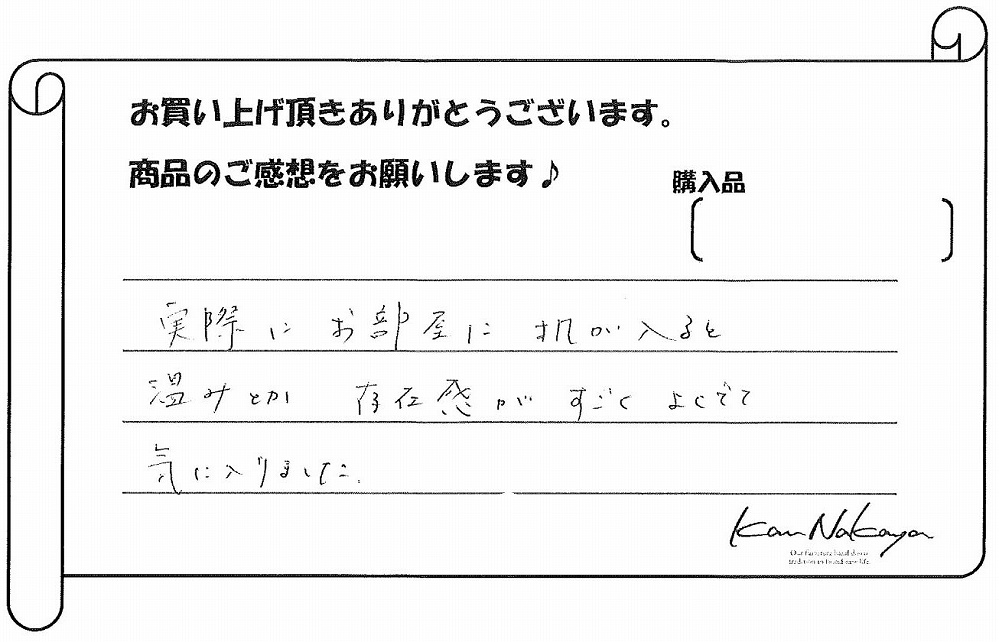 お買い上げ頂きありがとうございます。
商品のご感想をお願いします♪
購入品
実際に お部屋に 机が入ると
温みとか 存在感が すごく よくでて
気に入りました.
Kan Nakaya